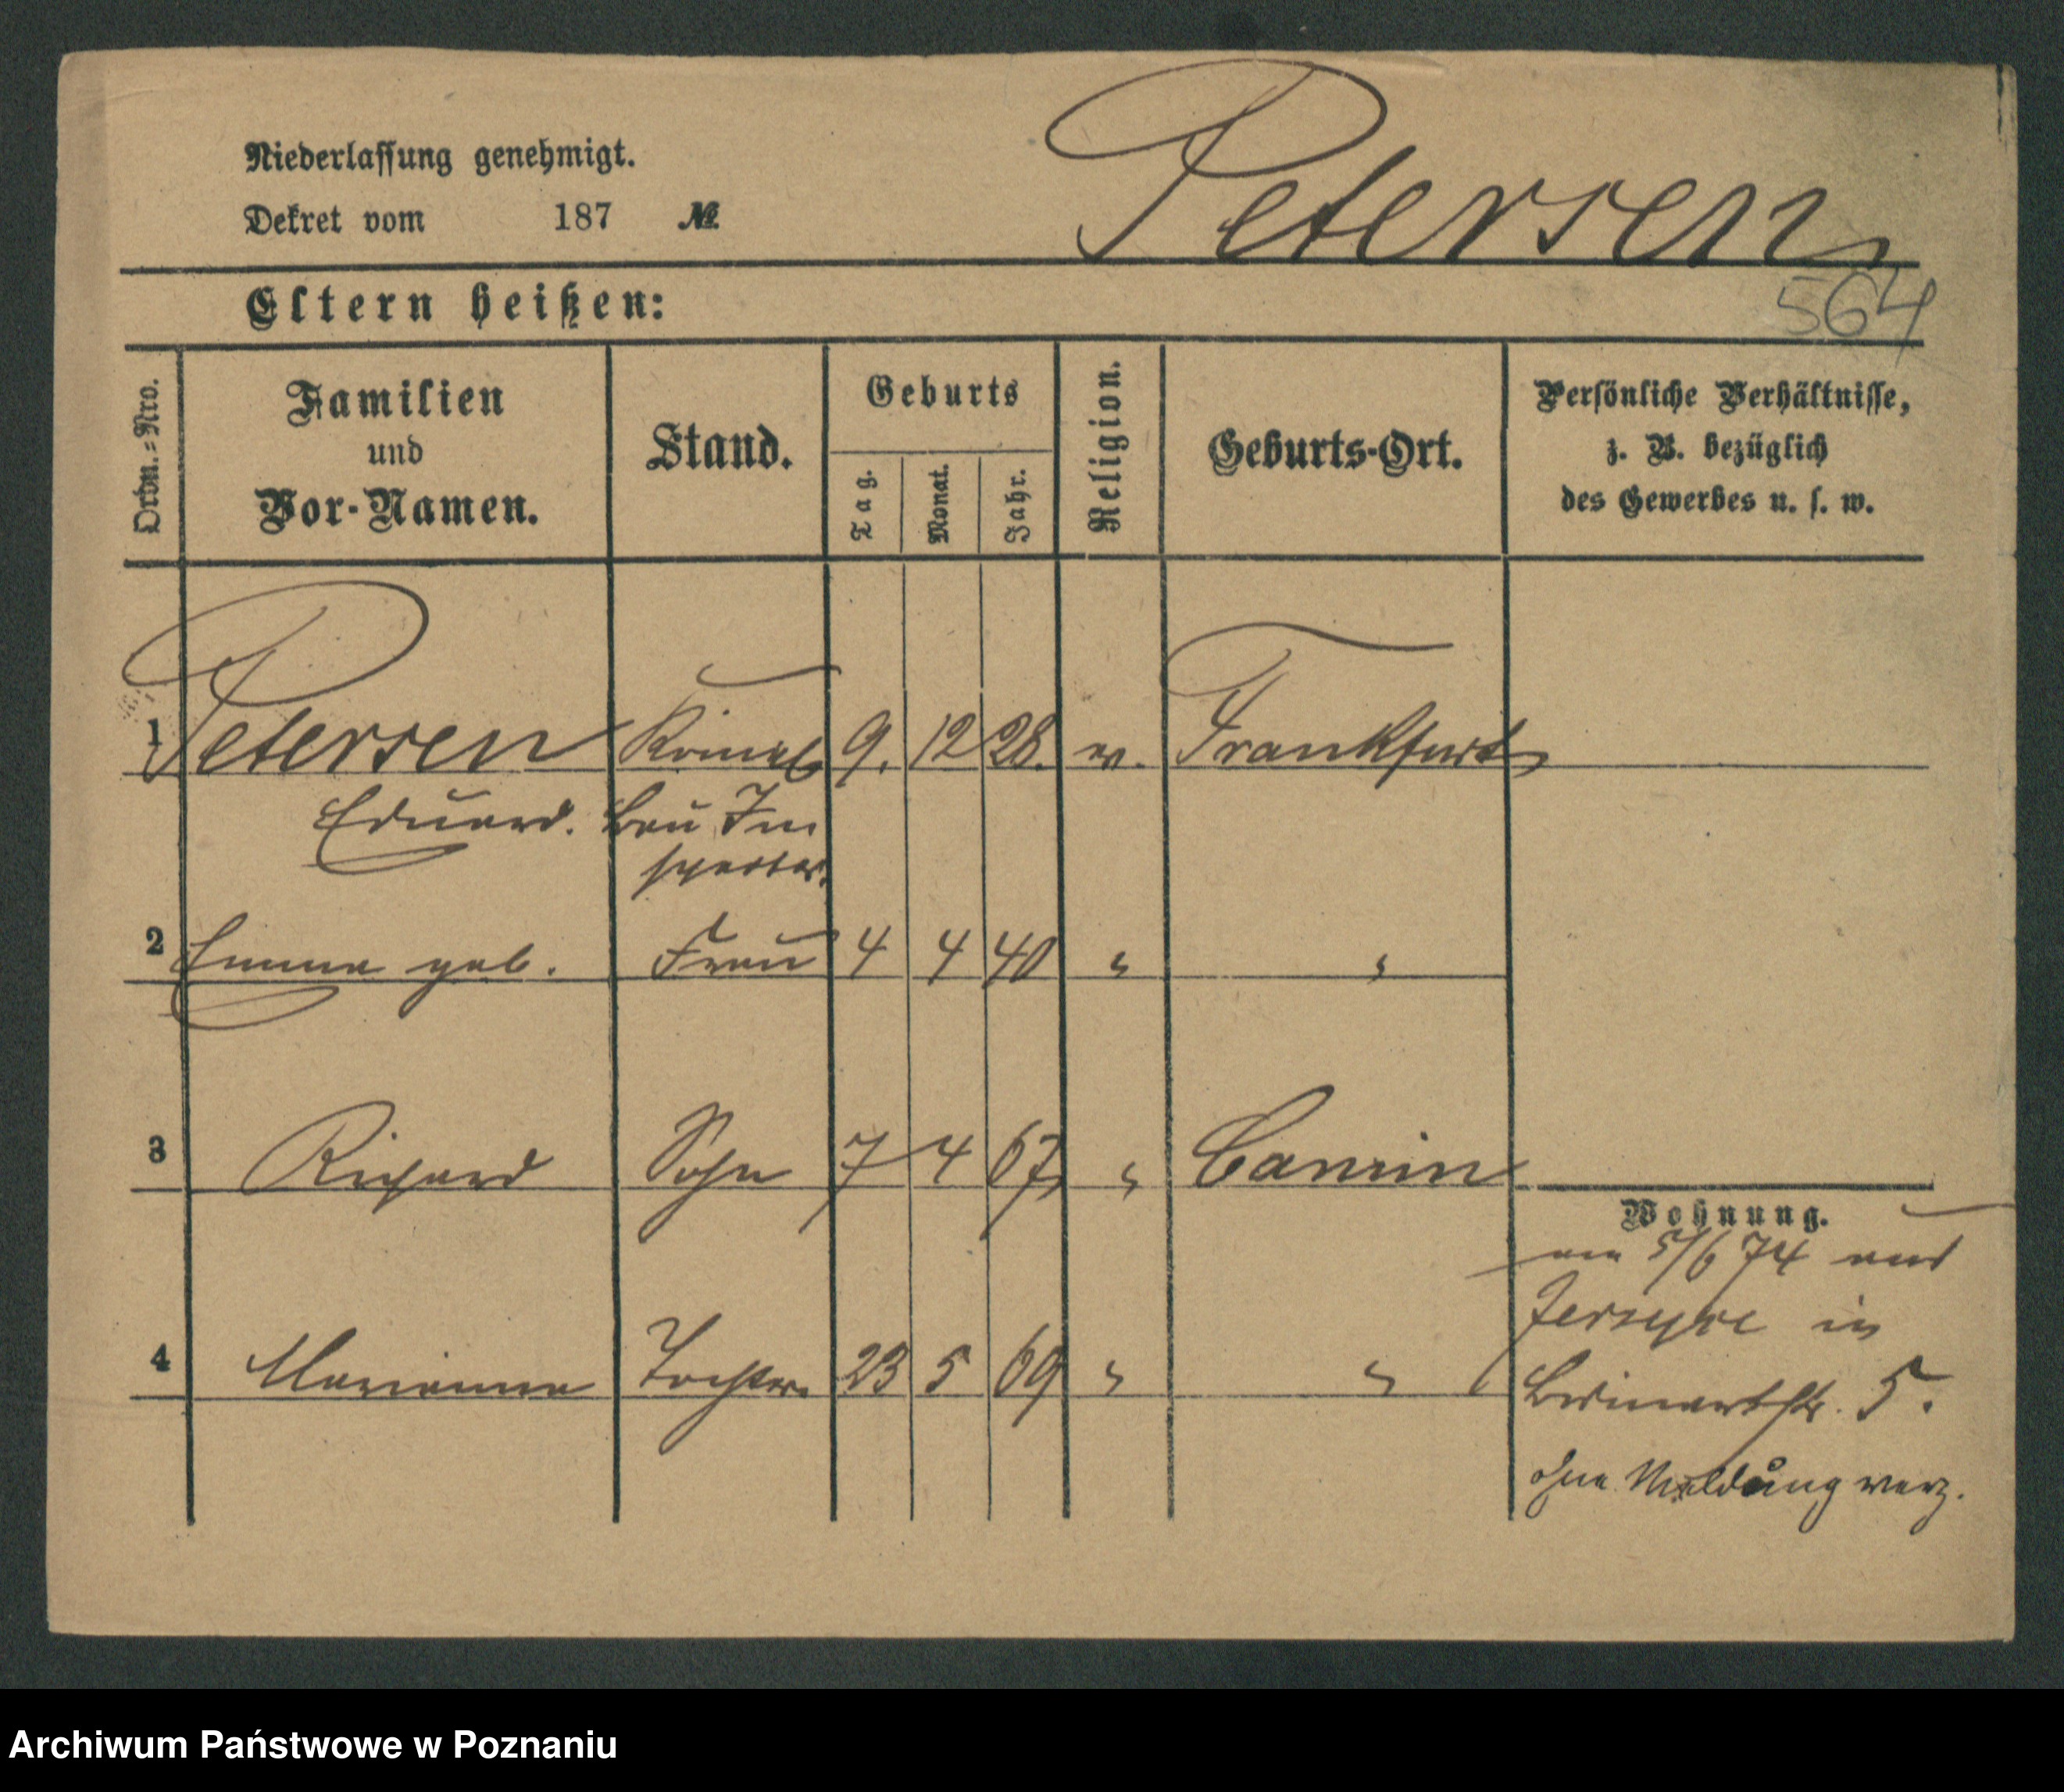 Niederlassung genehmigt.
Dekret vom 187 №
Petersen
564
Eltern heißen:
Ordn.-Nro.
Familien und Vor-Namen.
Stand.
Geburts
Tag.
Monat.
Jahr.
Religion.
Geburts-Ort.
Persönliche Verhältnisse,
z. B. bezüglich
des Gewerbes u. s. w.
1 Petersen 9. 12 28. Frankfurt
Eduard. Bau In
spector.
2 Emma geb. Frau 4 4 40 " "
3 Richard Sohn 7 4 67 " Cammin
Wohnung.
am 5/6 74 aus
Jerzyce in
4 Marianna Tochter 23 5 69 " "
Bismarkstr. 5.
ohne Meldung verz.
Archiwum Państwowe w Poznaniu